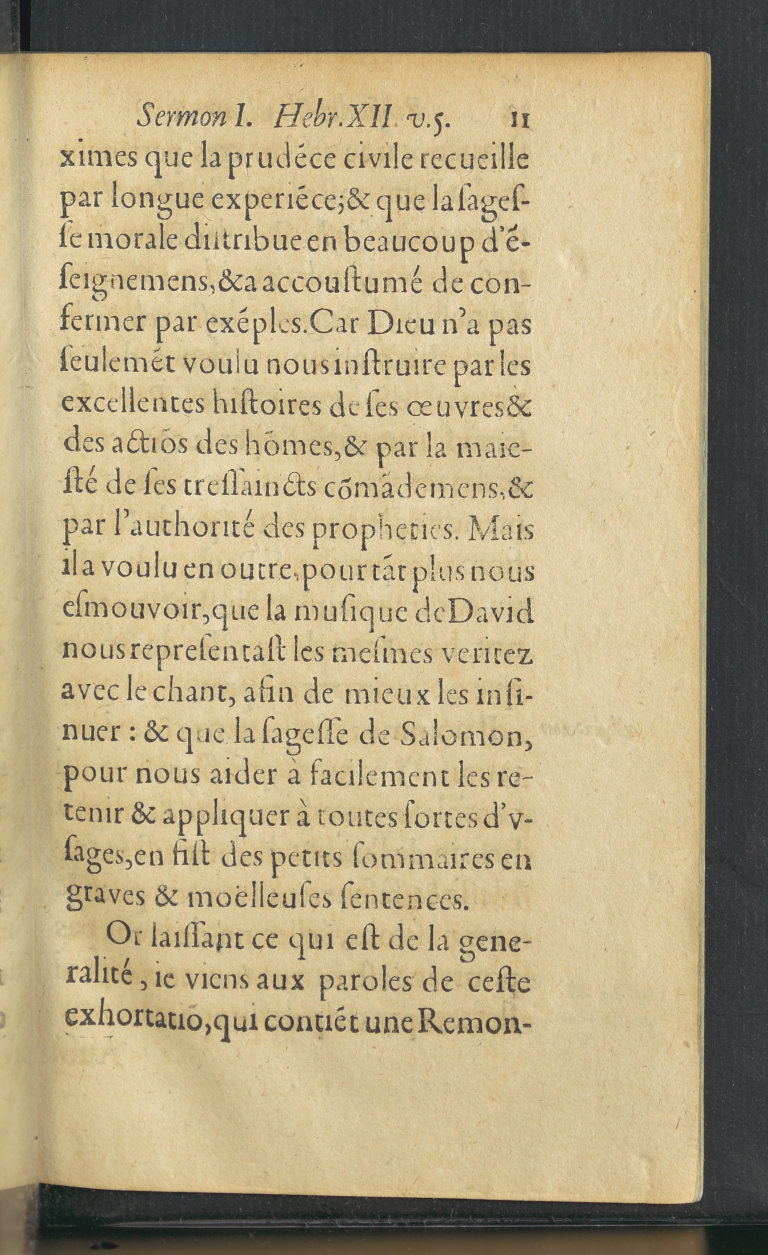 Sermon I. Hebr. XII v.5. 11
ximes que la prudẽce civile recueille
par longue experiẽce;& que la ſageſ-
ſe morale diſtribue en beaucoup d'ẽ-
ſeignemens,&a accouſtumé de con-
fermer par exẽples.Car Dieu n'a pas
ſeulemẽt voulu nous inſtruire par les
excellentes hiſtoires de ſes œuvres&
des actiõs des hõmes,& par la maie-
ſté de ſes treſſaincts cõmãdemens,&
par l'authorité des propheties. Mais
il a voulu en outre,pour tãt plus nous
eſmouvoir,que la muſique de David
nous repreſentaſt les meſmes veritez
avec le chant, afin de mieux les inſi-
nuer : & que la ſageſſe de Salomon,
pour nous aider à facilement les re-
tenir & appliquer à toutes ſortes d'v-
ſages,en fiſt des petits ſommaires en
graves & moëlleuſes ſentences.
Or laiſſant ce qui eſt de la gene-
ralité, ie viens aux paroles de ceſte
exhortatiõ,qui contiẽt une Remon-